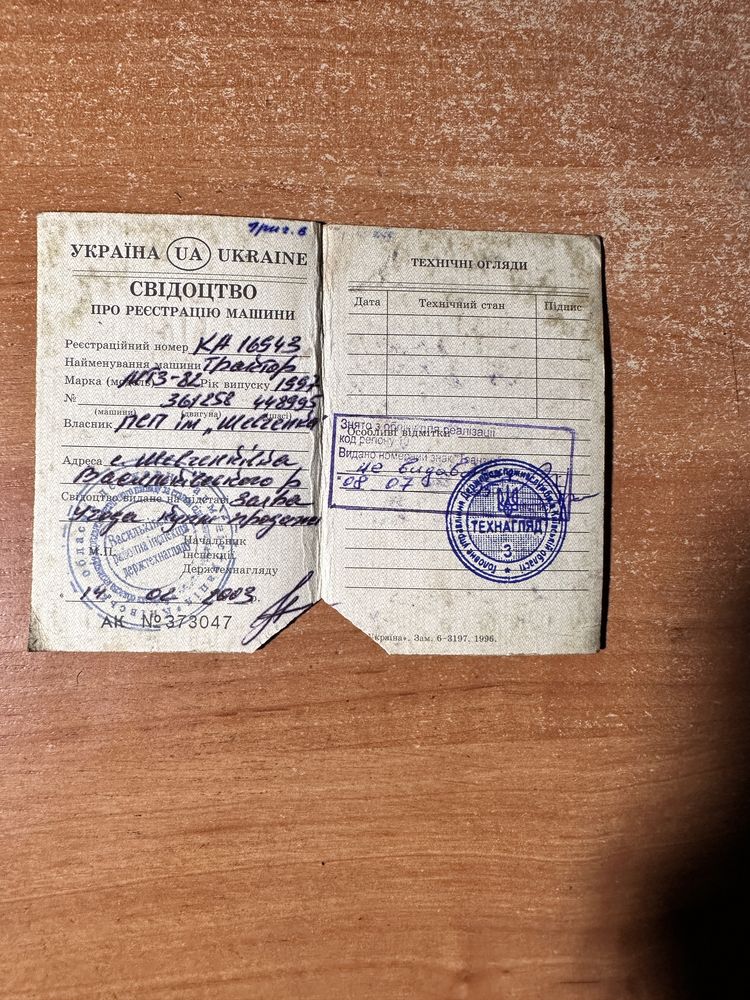 УКРАЇНА UA UKRAINE
СВІДОЦТВО
ПРО РЕЄСТРАЦІЮ МАШИНИ
Реєстраційний номер КА 16943
Найменування машини Трактор
Марка (модель) МТЗ-82 Рік випуску 1997
№ 361258 448995
(машини) (двигуна) (шасі)
Власник ПСП ім. „Шевченка"
Адреса с. Шевченківка
Васильківського р
Свідоцтво видане на підставі заява
угода купл продажи
М.П.
Начальник
інспекції
Держтехнагляду
" 14 " 02 2003 р.
АК №373047
ТЕХНІЧНІ ОГЛЯДИ
Дата Технічний стан Підпис
Особливі відмітки
Знято з обліку для реалізації
код регіону
Видано номерний знак
не видав
08 07
ТЕХНАГЛЯД
3
Україна". Зам. 6-3197. 1996.